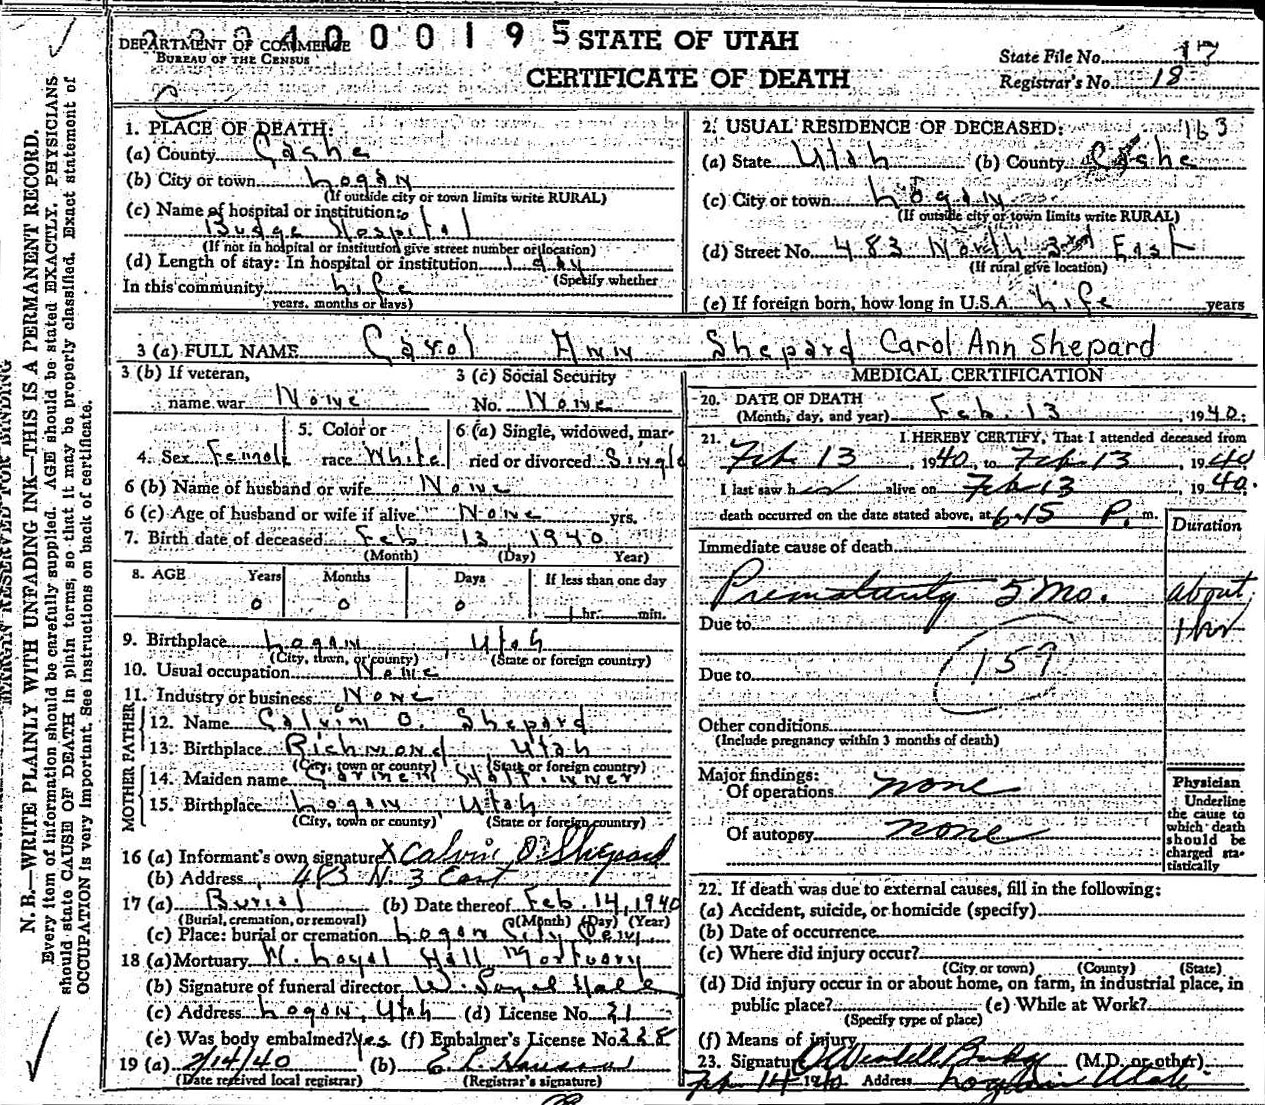 22400195
DEPARTMENT OF COMMERCE
BUREAU OF THE CENSUS
STATE OF UTAH
CERTIFICATE OF DEATH
State File No. 17
Registrar's No. 18
1. PLACE OF DEATH:
(a) County Cache
(b) City or town Logan
(If outside city or town limits write RURAL)
(c) Name of hospital or institution:
Budge Hospital
(If not in hospital or institution give street number or location)
(d) Length of stay: In hospital or institution 1 day
(Specify whether
In this community Life
years, months or days)
2. USUAL RESIDENCE OF DECEASED: 163
(a) State Utah (b) County Cache
(c) City or town Logan
(If outside city or town limits write RURAL)
(d) Street No. 483 North 3rd East
(If rural give location)
(e) If foreign born, how long in U.S.A. Life years
3 (a) FULL NAME Carol Ann Shepard Carol Ann Shepard
3 (b) If veteran,
name war None
3 (c) Social Security
No. None
4. Sex Female
5. Color or
race White
6 (a) Single, widowed, mar-
ried or divorced Single
6 (b) Name of husband or wife None
6 (c) Age of husband or wife if alive None yrs.
7. Birth date of deceased Feb 13 1940
(Month) (Day) Year)
8. AGE Years Months Days If less than one day
0 0 0 1 hr. min.
9. Birthplace Logan, Utah
(City, town, or county) (State or foreign country)
10. Usual occupation None
11. Industry or business None
FATHER
12. Name Calvin O. Shepard
13. Birthplace Richmond, Utah
(City, town or county) (State or foreign country)
MOTHER
14. Maiden name
15. Birthplace Logan Utah
(City, town or county) (State or foreign country)
16 (a) Informant's own signature X Calvin O. Shepard
(b) Address 483 N. 3 East
17 (a) Burial (b) Date thereof Feb. 14, 1940
(Burial, cremation, or removal) (Month) (Day) (Year)
(c) Place: burial or cremation Logan City Cem.
18 (a) Mortuary W. Loyal Hall Mortuary
(b) Signature of funeral director W. Loyal Hall
(c) Address Logan, Utah (d) License No. 21
(e) Was body embalmed? Yes (f) Embalmer's License No. 228
19 (a) 2/14/40 (b)
(Date received local registrar) (Registrar's signature)
MEDICAL CERTIFICATION
20. DATE OF DEATH
(Month, day, and year) Feb. 13 1940.
21. I HEREBY CERTIFY, That I attended deceased from
Feb 13, 1940, to Feb 13, 1940
I last saw her alive on Feb 13, 1940.
death occurred on the date stated above, at 6:15 P. m.
Duration
Immediate cause of death
Prematurity 5 mo. about
Due to 1 hr
159
Due to
Other conditions
(Include pregnancy within 3 months of death)
Major findings:
Of operations none
Of autopsy none
Physician
Underline
the cause to
which death
should be
charged sta-
tistically
22. If death was due to external causes, fill in the following:
(a) Accident, suicide, or homicide (specify)
(b) Date of occurrence
(c) Where did injury occur?
(City or town) (County) (State)
(d) Did injury occur in or about home, on farm, in industrial place, in
public place? (e) While at Work?
(Specify type of place)
(f) Means of injury
23. Signature O Wendell Budge (M.D. or other)
Feb 14 1940 Address Logan Utah
MARGIN RESERVED FOR BINDING
N. B.—WRITE PLAINLY WITH UNFADING INK—THIS IS A PERMANENT RECORD.
Every item of information should be carefully supplied. AGE should be stated EXACTLY. PHYSICIANS
should state CAUSE OF DEATH in plain terms, so that it may be properly classified. Exact statement of
OCCUPATION is very important. See instructions on back of certificate.